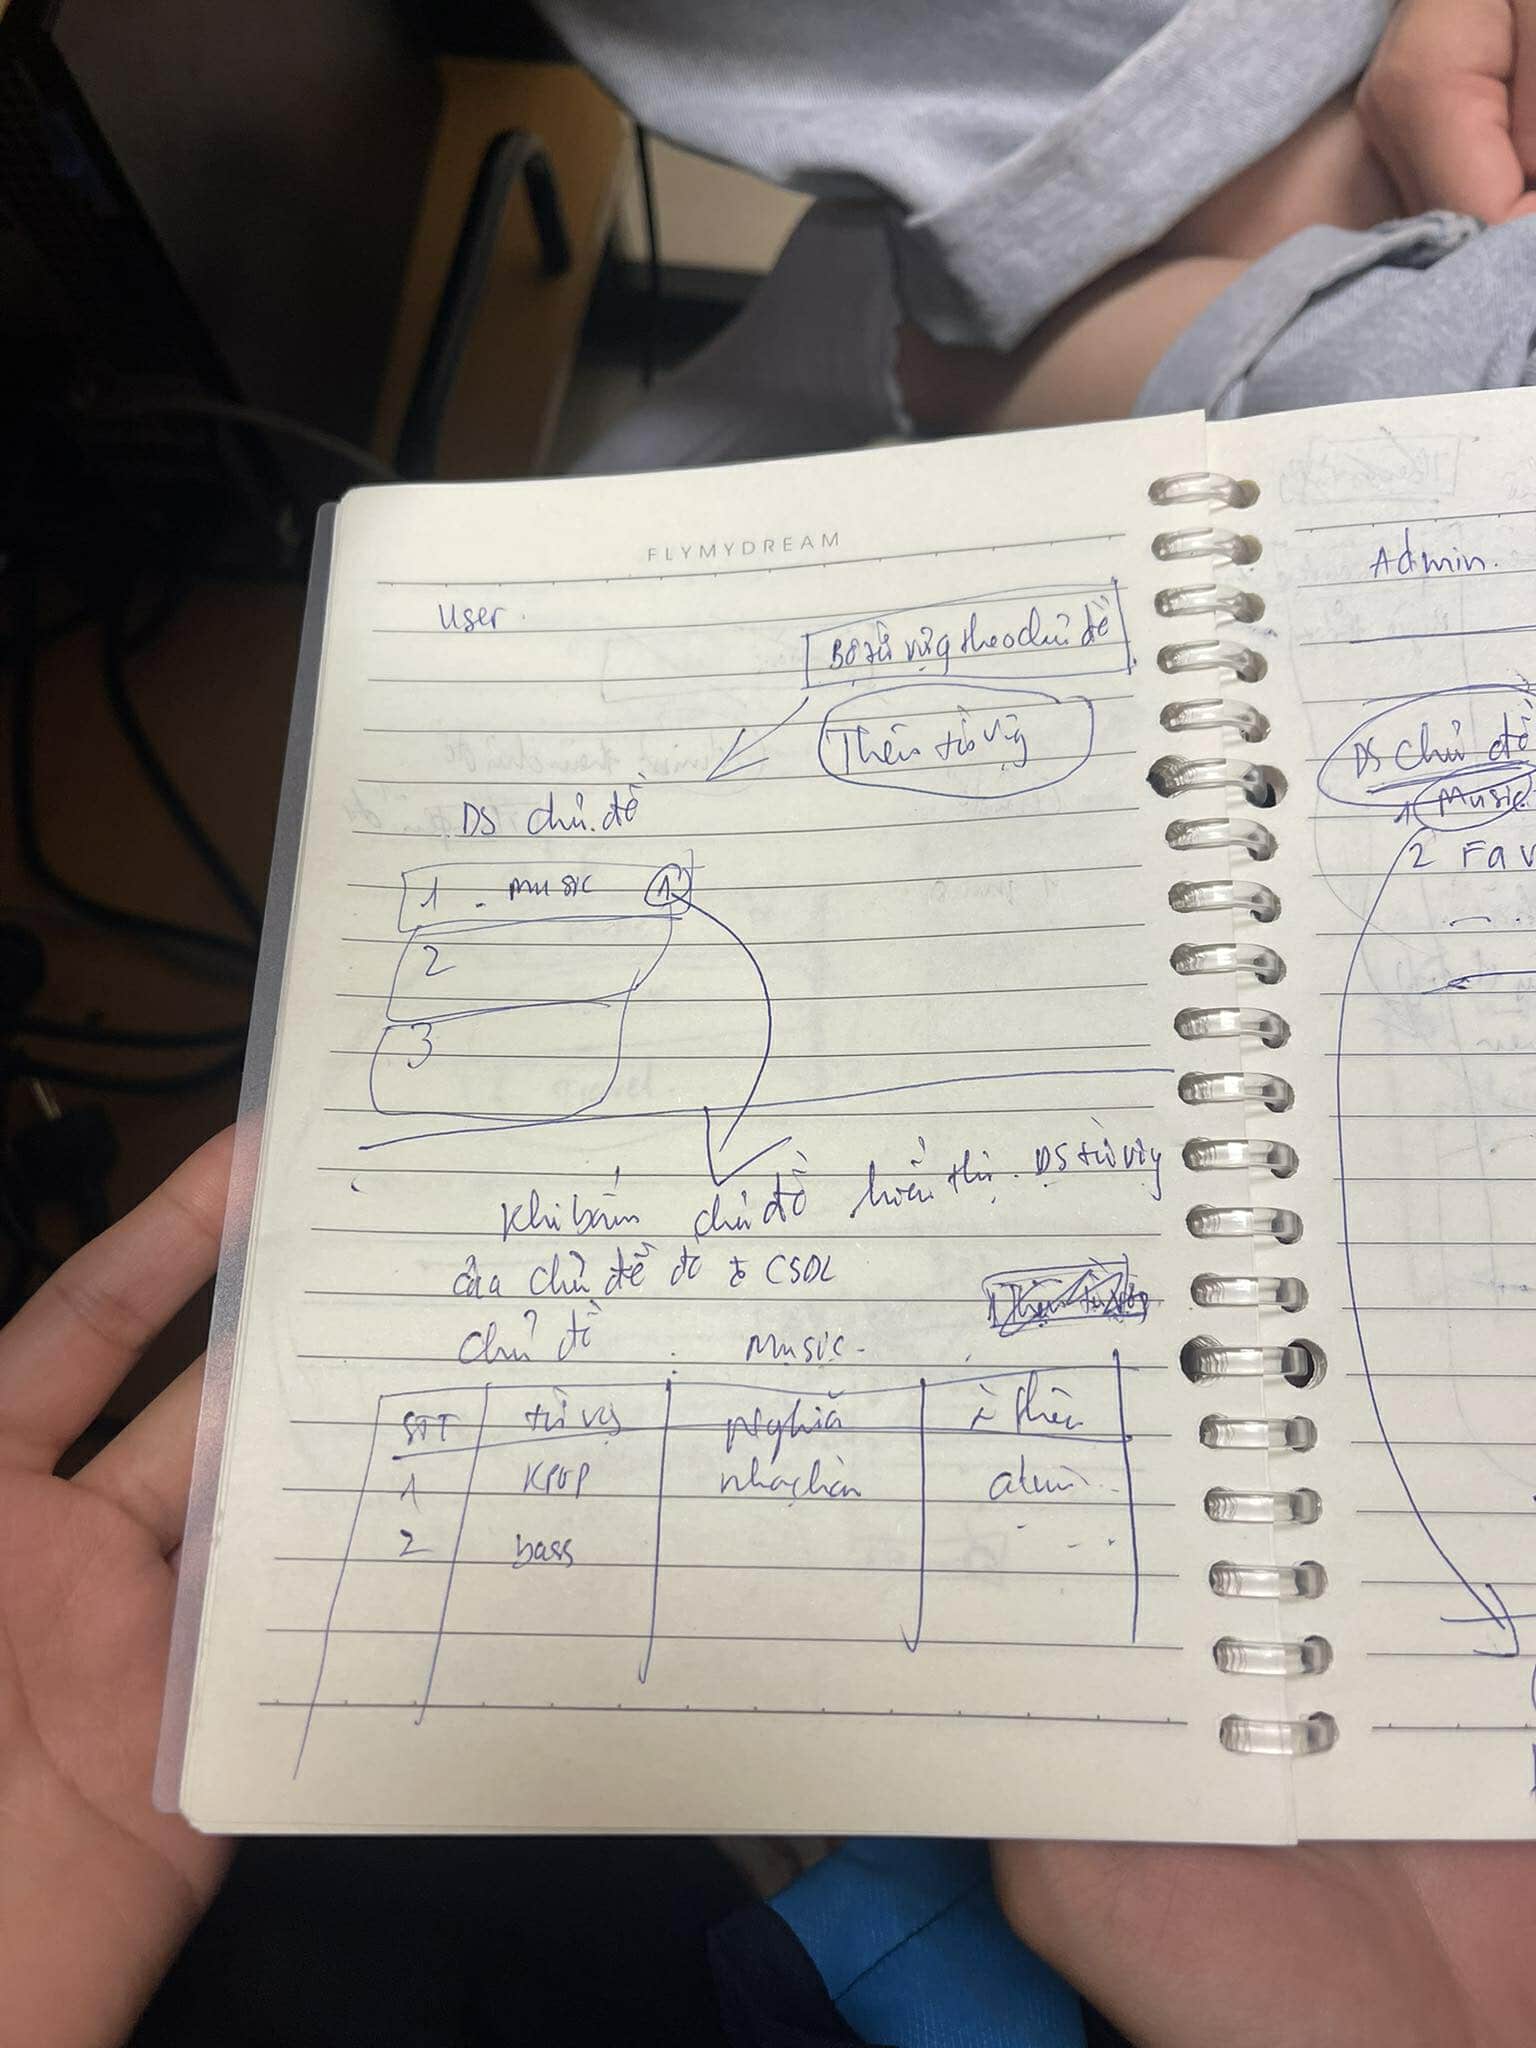 FLYMYDREAM
User.
Bộ từ vựng theo chủ đề
Thêm từ vựng
DS chủ đề
1. music 1
2
3
Khi bấm chủ đề hiển thị DS từ vựng
của chủ đề đó CSDL
Chủ đề : Music
STT từ vg Nghĩa thêm
1 KPOP nhạc hàn
2 bass
Admin.
DS chủ đề
1 Music
2 Fav